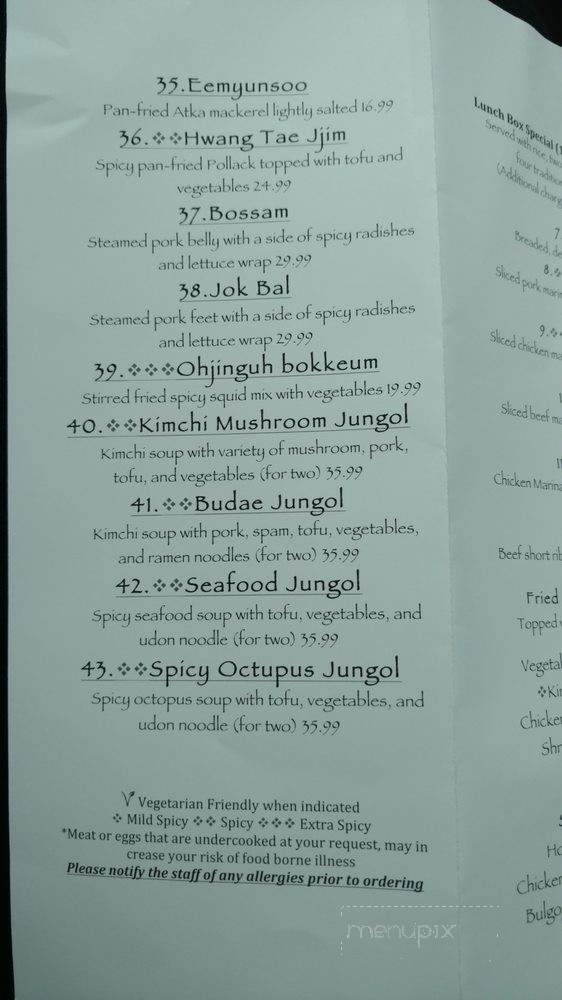 35.Eemyunsoo
Pan-fried Atka mackerel lightly salted 16.99
36.❖❖Hwang Tae Jjim
Spicy pan-fried Pollack topped with tofu and
vegetables 24.99
37.Bossam
Steamed pork belly with a side of spicy radishes
and lettuce wrap 29.99
38.Jok Bal
Steamed pork feet with a side of spicy radishes
and lettuce wrap 29.99
39.❖❖❖Ohjinguh bokkeum
Stirred fried spicy squid mix with vegetables 19.99
40.❖❖Kimchi Mushroom Jungol
Kimchi soup with variety of mushroom, pork,
tofu, and vegetables (for two) 35.99
41.❖❖Budae Jungol
Kimchi soup with pork, spam, tofu, vegetables,
and ramen noodles (for two) 35.99
42.❖❖Seafood Jungol
Spicy seafood soup with tofu, vegetables, and
udon noodle (for two) 35.99
43.❖❖Spicy Octupus Jungol
Spicy octopus soup with tofu, vegetables, and
udon noodle (for two) 35.99
V Vegetarian Friendly when indicated
❖ Mild Spicy ❖❖ Spicy ❖❖❖ Extra Spicy
*Meat or eggs that are undercooked at your request, may in
crease your risk of food borne illness
Please notify the staff of any allergies prior to ordering
Lunch Box Special (
Served with rice,
four
(Additional
7
Breaded,
8.❖
Sliced pork
9.❖
Sliced chicken
Sliced beef
Chicken
Beef short
Fried
Topped
❖
Chicken
menupix